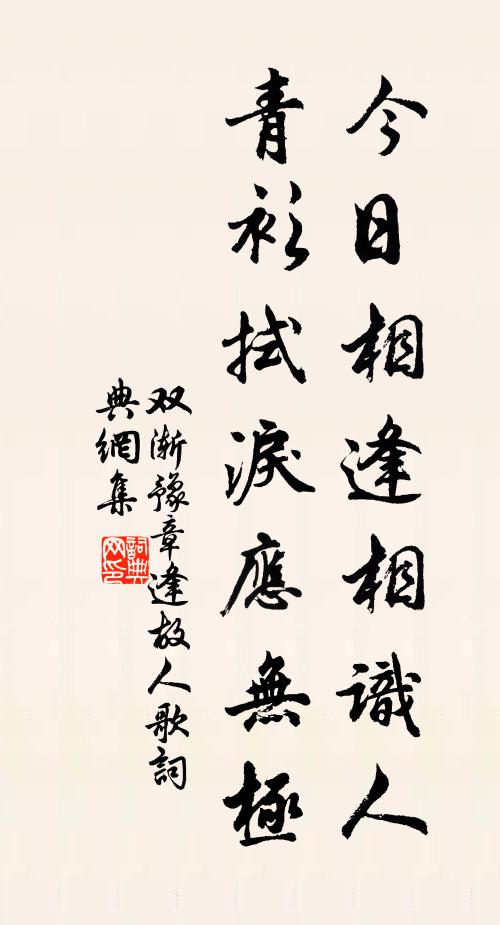 今日相逢相識人
青衫拭淚應無極
双渐豫章逢故人歌詞
典網集
詞典
网印